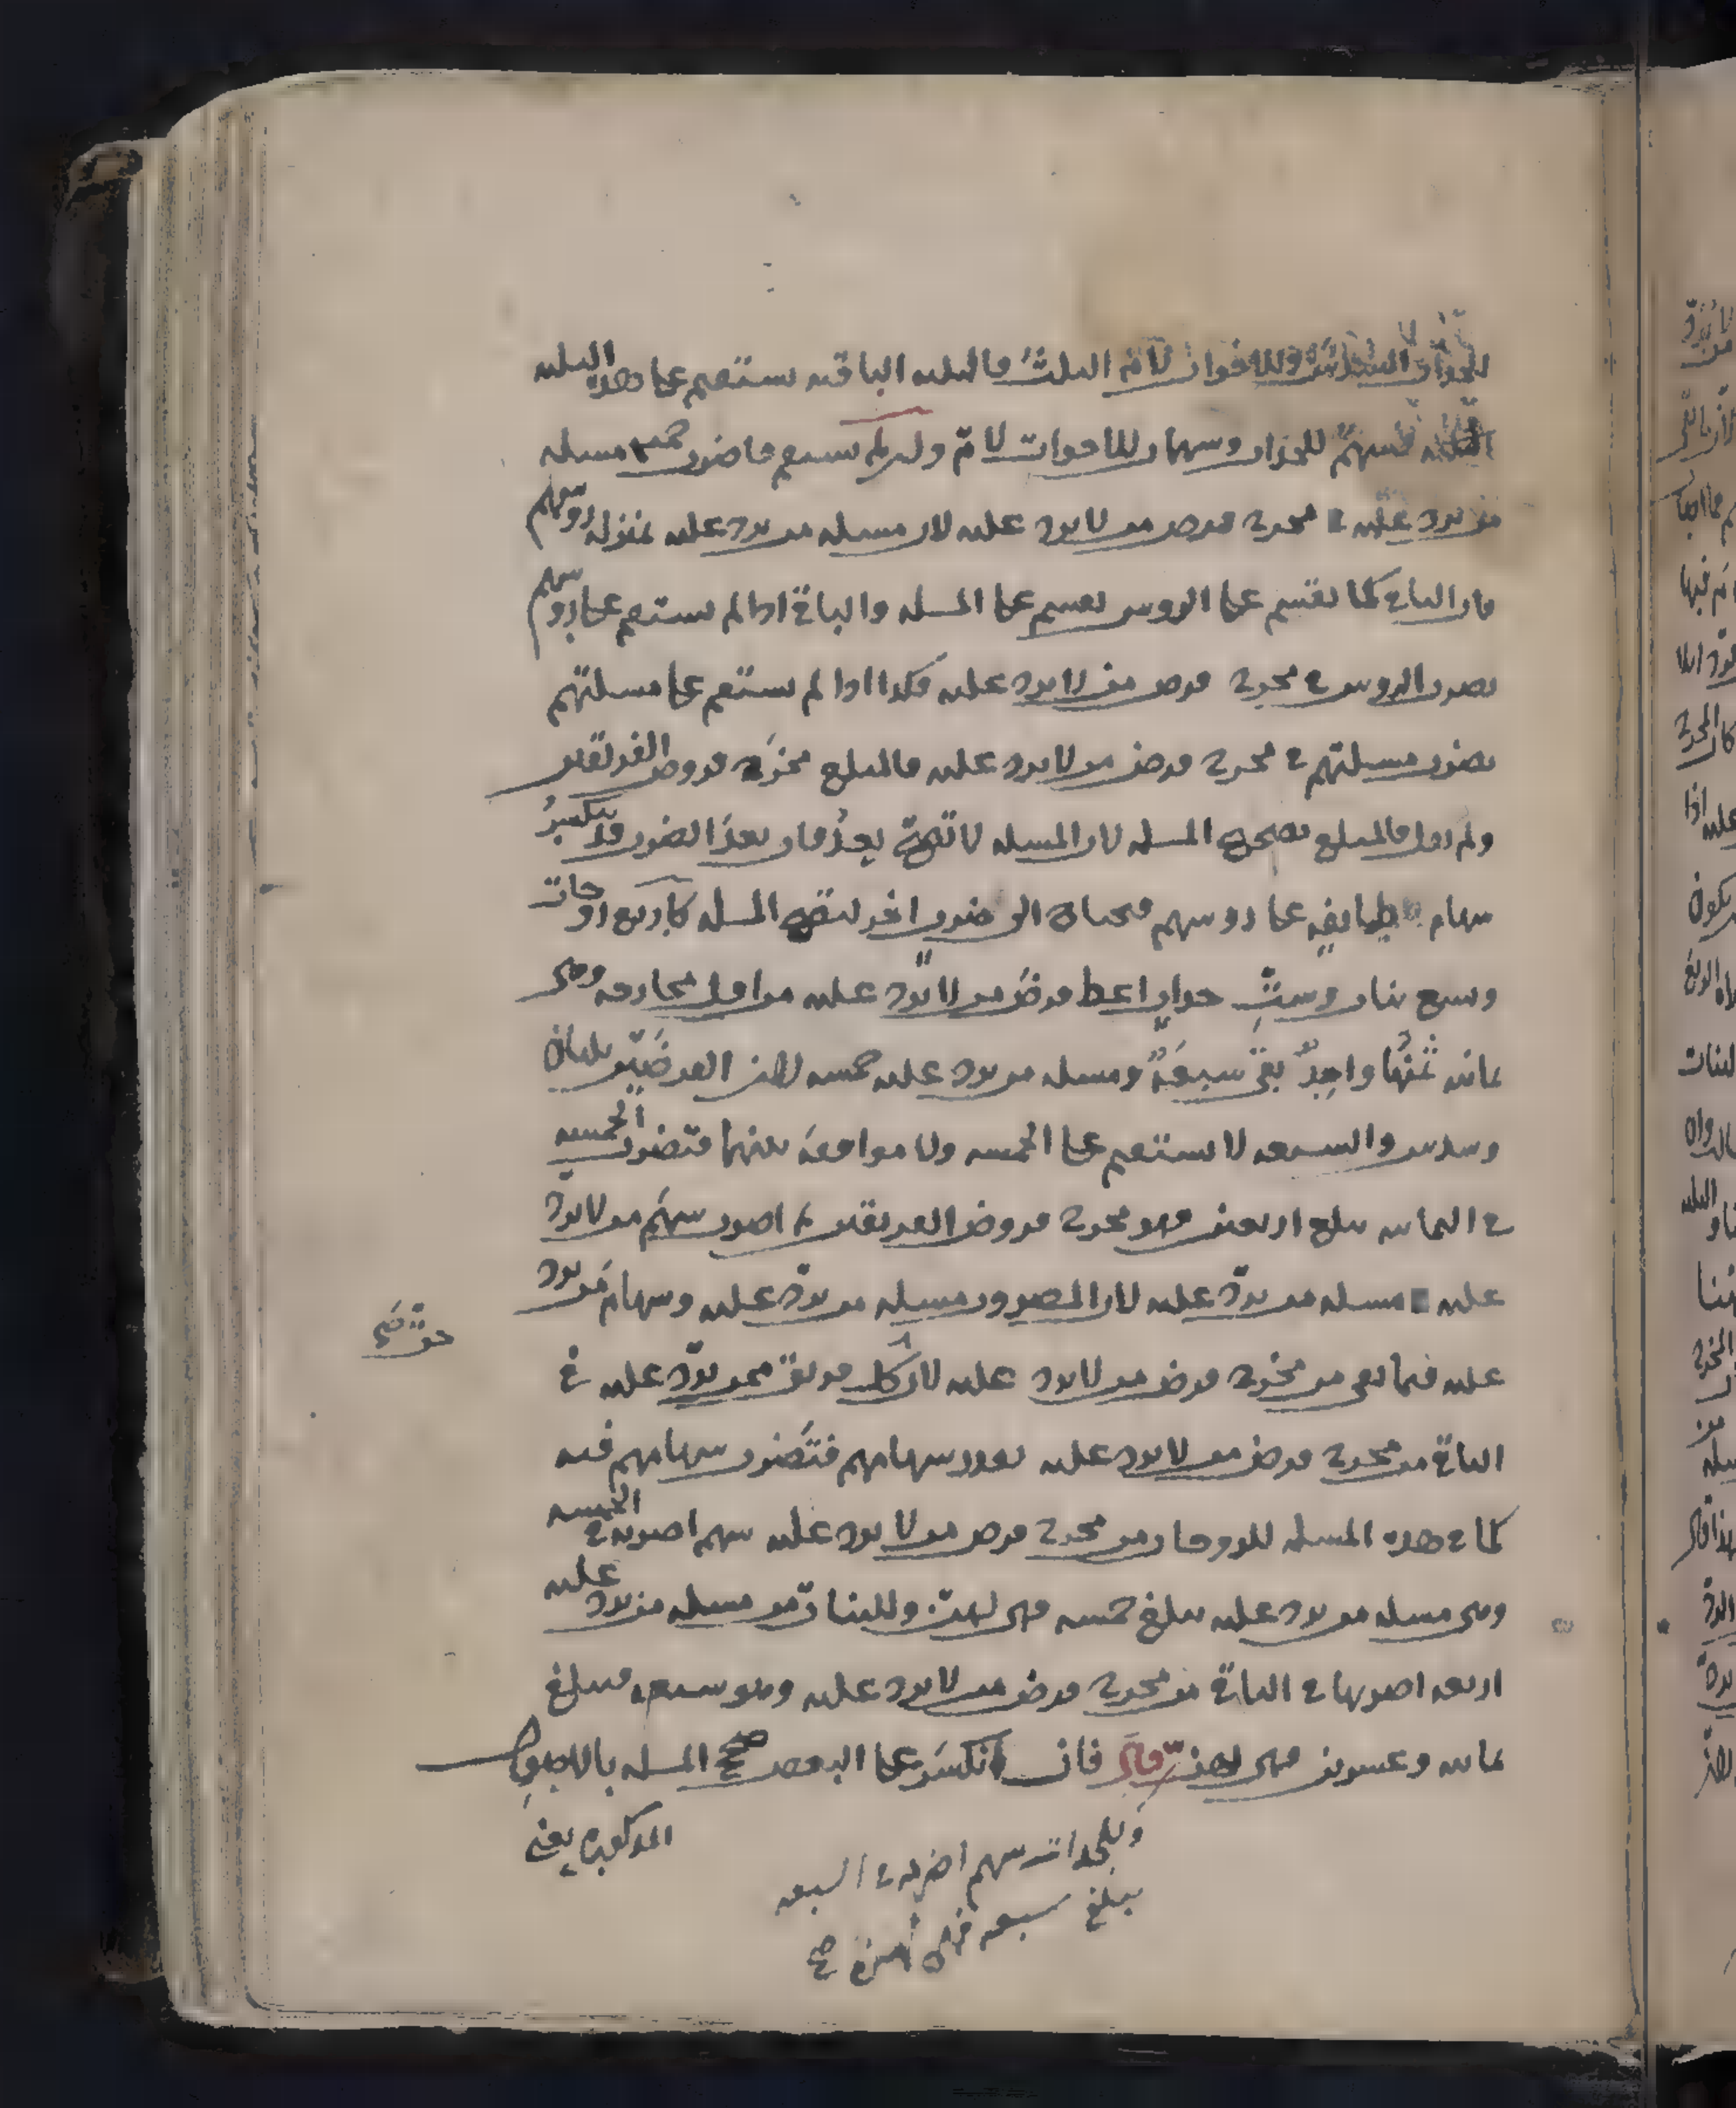 للجدات السدس وللاخوات لام الثلث فالثلثه الباقيه يستقيم على هذه الثلثه
فسهم للجدات وسهمان للاخوات لام وان لم يستقم فاضرب جميع مسئله
من يرد عليه في مخرج فرض من لا يرد عليه لان مسئله من يرد عليه بمنزله روسهم
فان الباقي كما يقسم على الروس يقسم على المسئله والباقي اذا لم يستقم على روسهم
يضرب الروس في مخرج فرض من لا يرد عليه فكذا اذا لم يستقم على مسئلتهم
يضرب مسئلتهم في مخرج فرض من لا يرد عليه فالمبلغ مخرج فروض الفريقين
ولم يقل فالمبلغ تصحيح المسئله لان المسئله لا تصح بعد فان بعد الضرب قد ينكسر
سهام طايفه على روسهم فيحتاج الى ضرب اخر لتصح المسئله كاربع زوجات
وتسع بنات وست جدات اعط فرض من لا يرد عليه من اقل مخارجه وهي
ثمانيه ثمنها واحد بقي سبعة ومسئله من يرد عليه خمسه لان الفرضين ثلثان
وسدس والسبعه لا يستقيم على الخمسه ولا موافقه بينهما فتضرب الخمسه
في الثمانيه يبلغ اربعين فهو مخرج فروض الفريقين ثم اضرب سهم من لا يرد
عليه في مسئله من يرد عليه لان المضروب مسئله من يرد عليه وسهام من يرد
عليه فيما بقي من مخرج فرض من لا يرد عليه لان كل فريق ممن يرد عليه في
حق صح
الباقي من مخرج فرض من لا يرد عليه بقدر سهامهم فتضرب سهامهم فيه
كما في هذه المسئله للزوجات من مخرج فرض من لا يرد عليه سهم اضربه في الخمسه
وهي مسئله من يرد عليه يبلغ خمسه فهي لهن وللبنات من مسئله من يرد عليه
اربعه اضربها في الباقي من مخرج فرض من لا يرد عليه وهو سبعه فيبلغ
ثمانيه وعشرين فهي لهن قال فان انكسر على البعض صحح المسئله بالاصول
المذكوره يعني
وللجدات سهم اضربه في السبعه
يبلغ سبعه فهي لهن صح